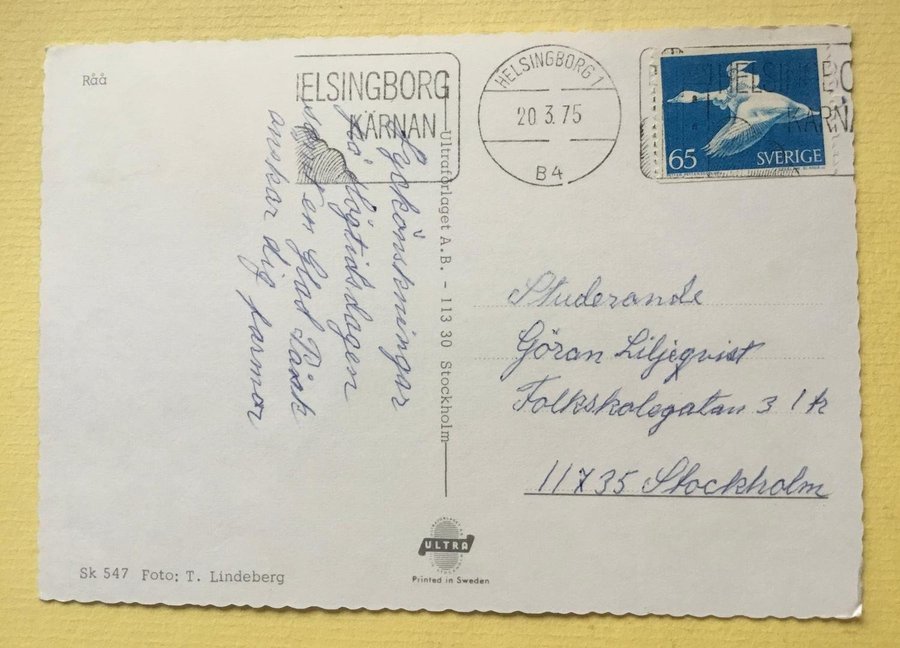 Råå
ELSINGBORG
KÄRNAN
HELSINGBORG 1
20 3.75
B4
HELSINGBO
KÄRNA
65 SVERIGE
Lyckönskningar
på högtidsdagen
samt en Glad Påsk
önskar dig farmor
Ultraförlaget A.B. - 113 30 Stockholm
Studerande
Göran Liljeqvist
Folkskolegatan 3 1 tr
11735 Stockholm
ULTRA
Printed in Sweden
Sk 547 Foto: T. Lindeberg